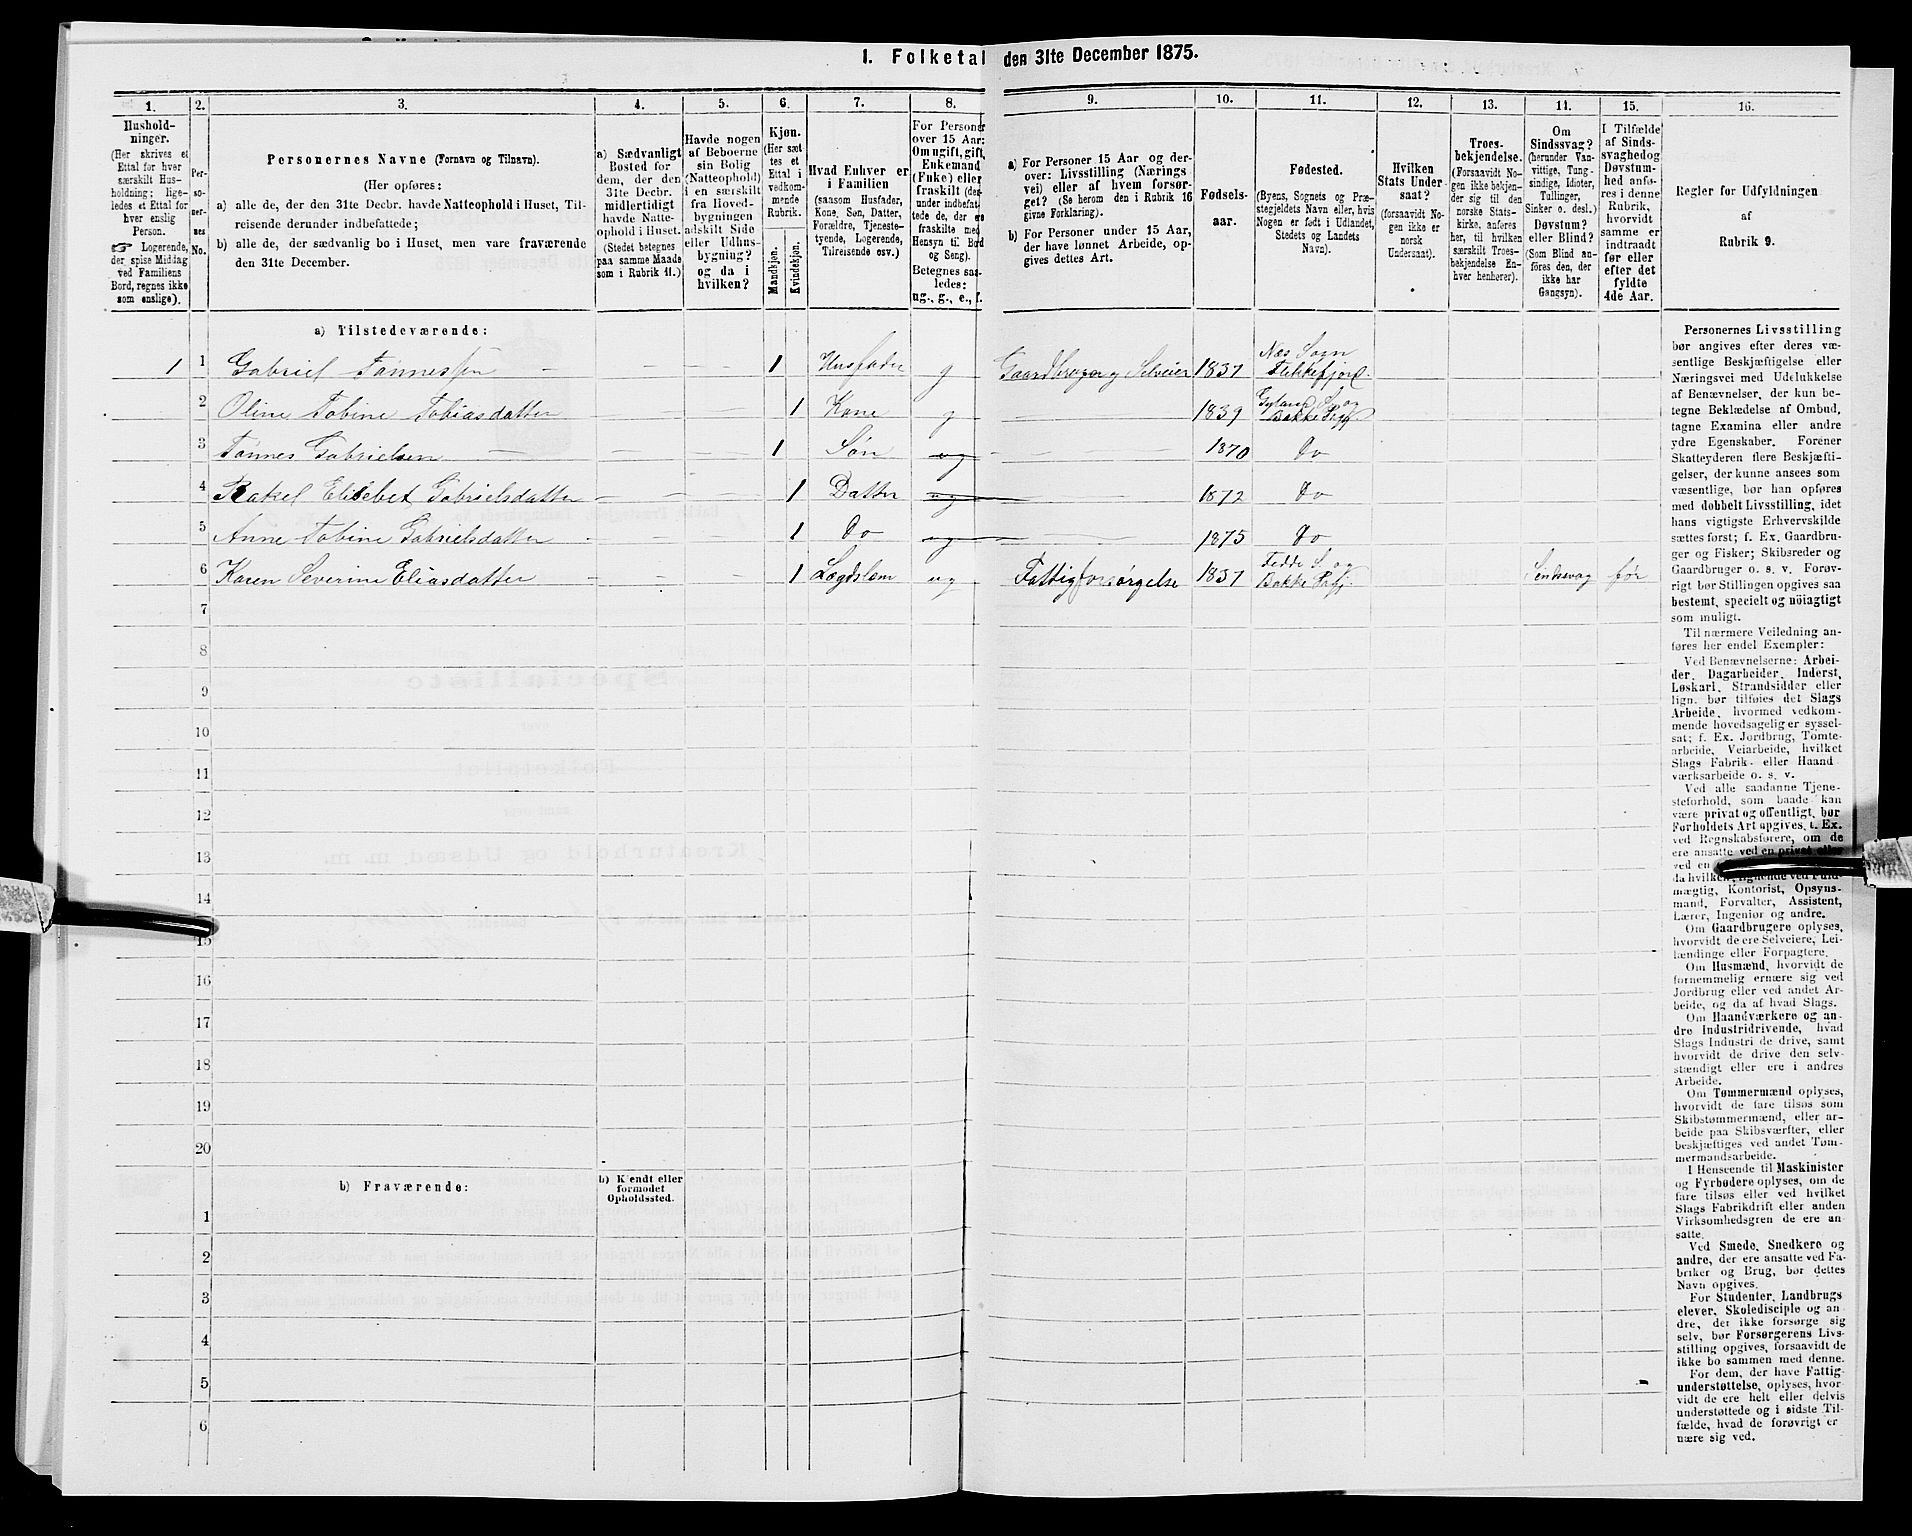 1. Folketal den 31te December 1875.
1. 2. 3. 4. 5. 6. 7. 8. 9. 10. 11. 12. 13. 14. 15. 16.
Hushold-
ninger.
(Her skrives et
Ettal for hver
særskilt Hus-
holdning; lige-
ledes et Ettal for
hver enslig
Person.
☞ Logerende,
der spise Middag
ved Familiens
Bord, regnes ikke
som enslige).
Per-
so-
ner-
nes
No.
Personernes Navne (Fornavn og Tilnavn).
(Her opføres:
a) alle de, der den 31te Decbr. havde Natteophold i Huset, Til-
reisende derunder indbefattede;
b) alle de, der sædvanlig bo i Huset, men vare fraværende
den 31te December.
a) Sædvanligt
Bosted for
dem, der den
31te Decbr.
midlertidigt
havde Natte-
ophold i Huset.
(Stedet betegnes
paa samme Maade
som i Rubrik 11.)
Havde nogen
af Beboerne
sin Bolig
(Natteophold)
i en særskilt
fra Hoved-
bygningen
adskilt Side
eller Udhus-
bygning?
og da i
hvilken?
Kjøn.
(Her sæt-
tes et
Ettal i
vedkom-
mende
Rubrik.
Mandkjøn.
Kvindekjøn.
Hvad Enhver er
i Familien
(saasom Husfader,
Kone, Søn, Datter,
Forældre, Tjeneste-
tyende, Logerende,
Tilreisende osv.)
For Personer
over 15 Aar:
Om ugift, gift,
Enkemand
(Enke) eller
fraskilt (der-
under indbefat-
tede de, der ere
fraskilte med
Hensyn til Bord
og Seng).
Betegnes saa-
ledes:
ug., g., e., f.
a) For Personer 15 Aar og der-
over: Livsstilling (Nærings
vei) eller af hvem forsør-
get? (Se herom den i Rubrik 16
givne Forklaring).
b) For Personer under 15 Aar,
der have lønnet Arbeide, op-
gives dettes Art.
Fødsels-
aar.
Fødested.
(Byens, Sognets og Præ-
stegjeldets Navn eller, hvis
Nogen er født i Udlandet,
Stedets og Landets
Navn).
Hvilken
Stats Under-
saat?
(forsaavidt No-
gen ikke er
norsk
Undersaat).
Troes-
bekjendelse.
(Forsaavidt No-
gen ikke bekjen-
der sig til den
norske Stats-
kirke, anføres
her, til hvilken
særskilt Troes-
bekjendelse En-
hver henhører).
Om
Sindssvag?
(herunder Van-
vittige, Tung-
sindige, Idioter,
Tullinger,
Sinker o. desl.)
Døvstum?
eller Blind?
(Som Blind an-
føres den, der
ikke har
Gangsyn).
I Tilfælde
af Sinds-
svaghed og
Døvstum-
hed anfø-
res i denne
Rubrik,
hvorvidt
samme er
indtraadt
før eller
efter det
fyldte
4de Aar.
Regler for Udfyldningen
af
Rubrik 9.
a) Tilstedeværende:
1 1 Gabriel Tønnessen 1 Husfader g Gaardbruger og Selveier 1837 Næs Sogn Flekkefjord
2 Oline Tobine Tobiasdatter 1 Kone g 1839 S. og Bakke Pgj
3 Tønnes Gabrielsen 1 Søn ug 1870 Do
4 Rakel Elisebet Gabrielsdatter 1 Datter ug 1872 Do
5 Anne Tobine Gabrielsdatter 1 Do ug 1875 Do
6 Karen Severine Eliasdatter 1 Lægdslem ug Fattigforsørgelse 1837 Fedde S. og Bakke Pgj. Sindssvag før
7
8
9
10
11
12
13
14
15
16
17
18
19
20
b) Fraværende:
b) Kjendt eller
formodet
Opholdssted.
1
2
3
4
5
6
Personernes Livsstilling
bør angives efter deres væ-
sentlige Beskjæftigelse eller
Næringsvei med Udelukkelse
af Benævnelser, der kun be-
tegne Beklædelse af Ombud,
tagne Examina eller andre
ydre Egenskaber. Forener
Skatteyderen flere Beskjæfti-
gelser, der kunne ansees som
væsentlige, bør han opføres
med dobbelt Livsstilling, idet
hans vigtigste Erhvervskilde
sættes først; f. Ex. Gaardbru-
ger og Fisker; Skibsreder og
Gaardbruger o. s. v. Forøv-
rigt bør Stillingen opgives saa
bestemt, specielt og nöiagtigt
som muligt.
Til nærmere Veiledning an-
føres her endel Exempler:
Ved Benævnelserne: Arbei-
der, Dagarbeider, Inderst,
Løskarl, Strandsidder eller
lign. bør tilføies det Slags
Arbeide, hvormed vedkom-
mende hovedsagelig er syssel-
sat; f. Ex. Jordbrug, Tomte-
arbeide, Veiarbeide, hvilket
Slags Fabrik- eller Haand
værksarbeide o. s. v.
Ved alle saadanne Tjene-
steforhold, som baade kan
være privat og offentligt, bør
Forholdets Art opgives, f. Ex.
ved Regnskabsførere, om de
ere ansatte ved en privat eller
ved en
da hvilken; lignende ved Fuld-
mægtig, Kontorist, Opsyns-
mand, Forvalter, Assistent,
Lærer, Ingeniør og andre.
Om Gaardbrugere oplyses,
hvorvidt de ere Selveiere, Lei-
lændinge eller Forpagtere.
Om Husmænd, hvorvidt de
fornemmelig ernære sig ved
Jordbrug eller ved andet Ar-
beide, og da af hvad Slags.
Om Haandværkere og an-
dre Industridrivende, hvad
Slags Industri de drive, samt
hvorvidt de drive den selv-
stændigt eller ere i andres
Arbeide.
Om Tømmermænd oplyses,
hvorvidt de fare tilsøs som
Skibstømmermænd, eller ar-
beide paa Skibsværfter, eller
beskjæftiges ved andet Tøm-
mermandsarbeide.
I Henseende til Maskinister
og Fyrbødere oplyses, om de
fare tilsøs eller ved hvilket
Slags Fabrikdrift eller anden
Virksomhedsgren de ere an-
satte.
Ved Smede, Snedkere og
andre, der ere ansatte ved Fa-
briker og Brug, bør dettes
Navn opgives.
For Studenter, Landbrugs
elever, Skoledisciple og an-
dre, der ikke forsørge sig
selv, bør Forsørgerens Livs-
stilling opgives, forsaavidt de
ikke bo sammen med denne.
For dem, der have Fattig-
understøttelse, oplyses, hvor-
vidt de ere helt eller delvis
understøttede og i sidste Til-
fælde, hvad de forøvrigt er
nære sig ved.